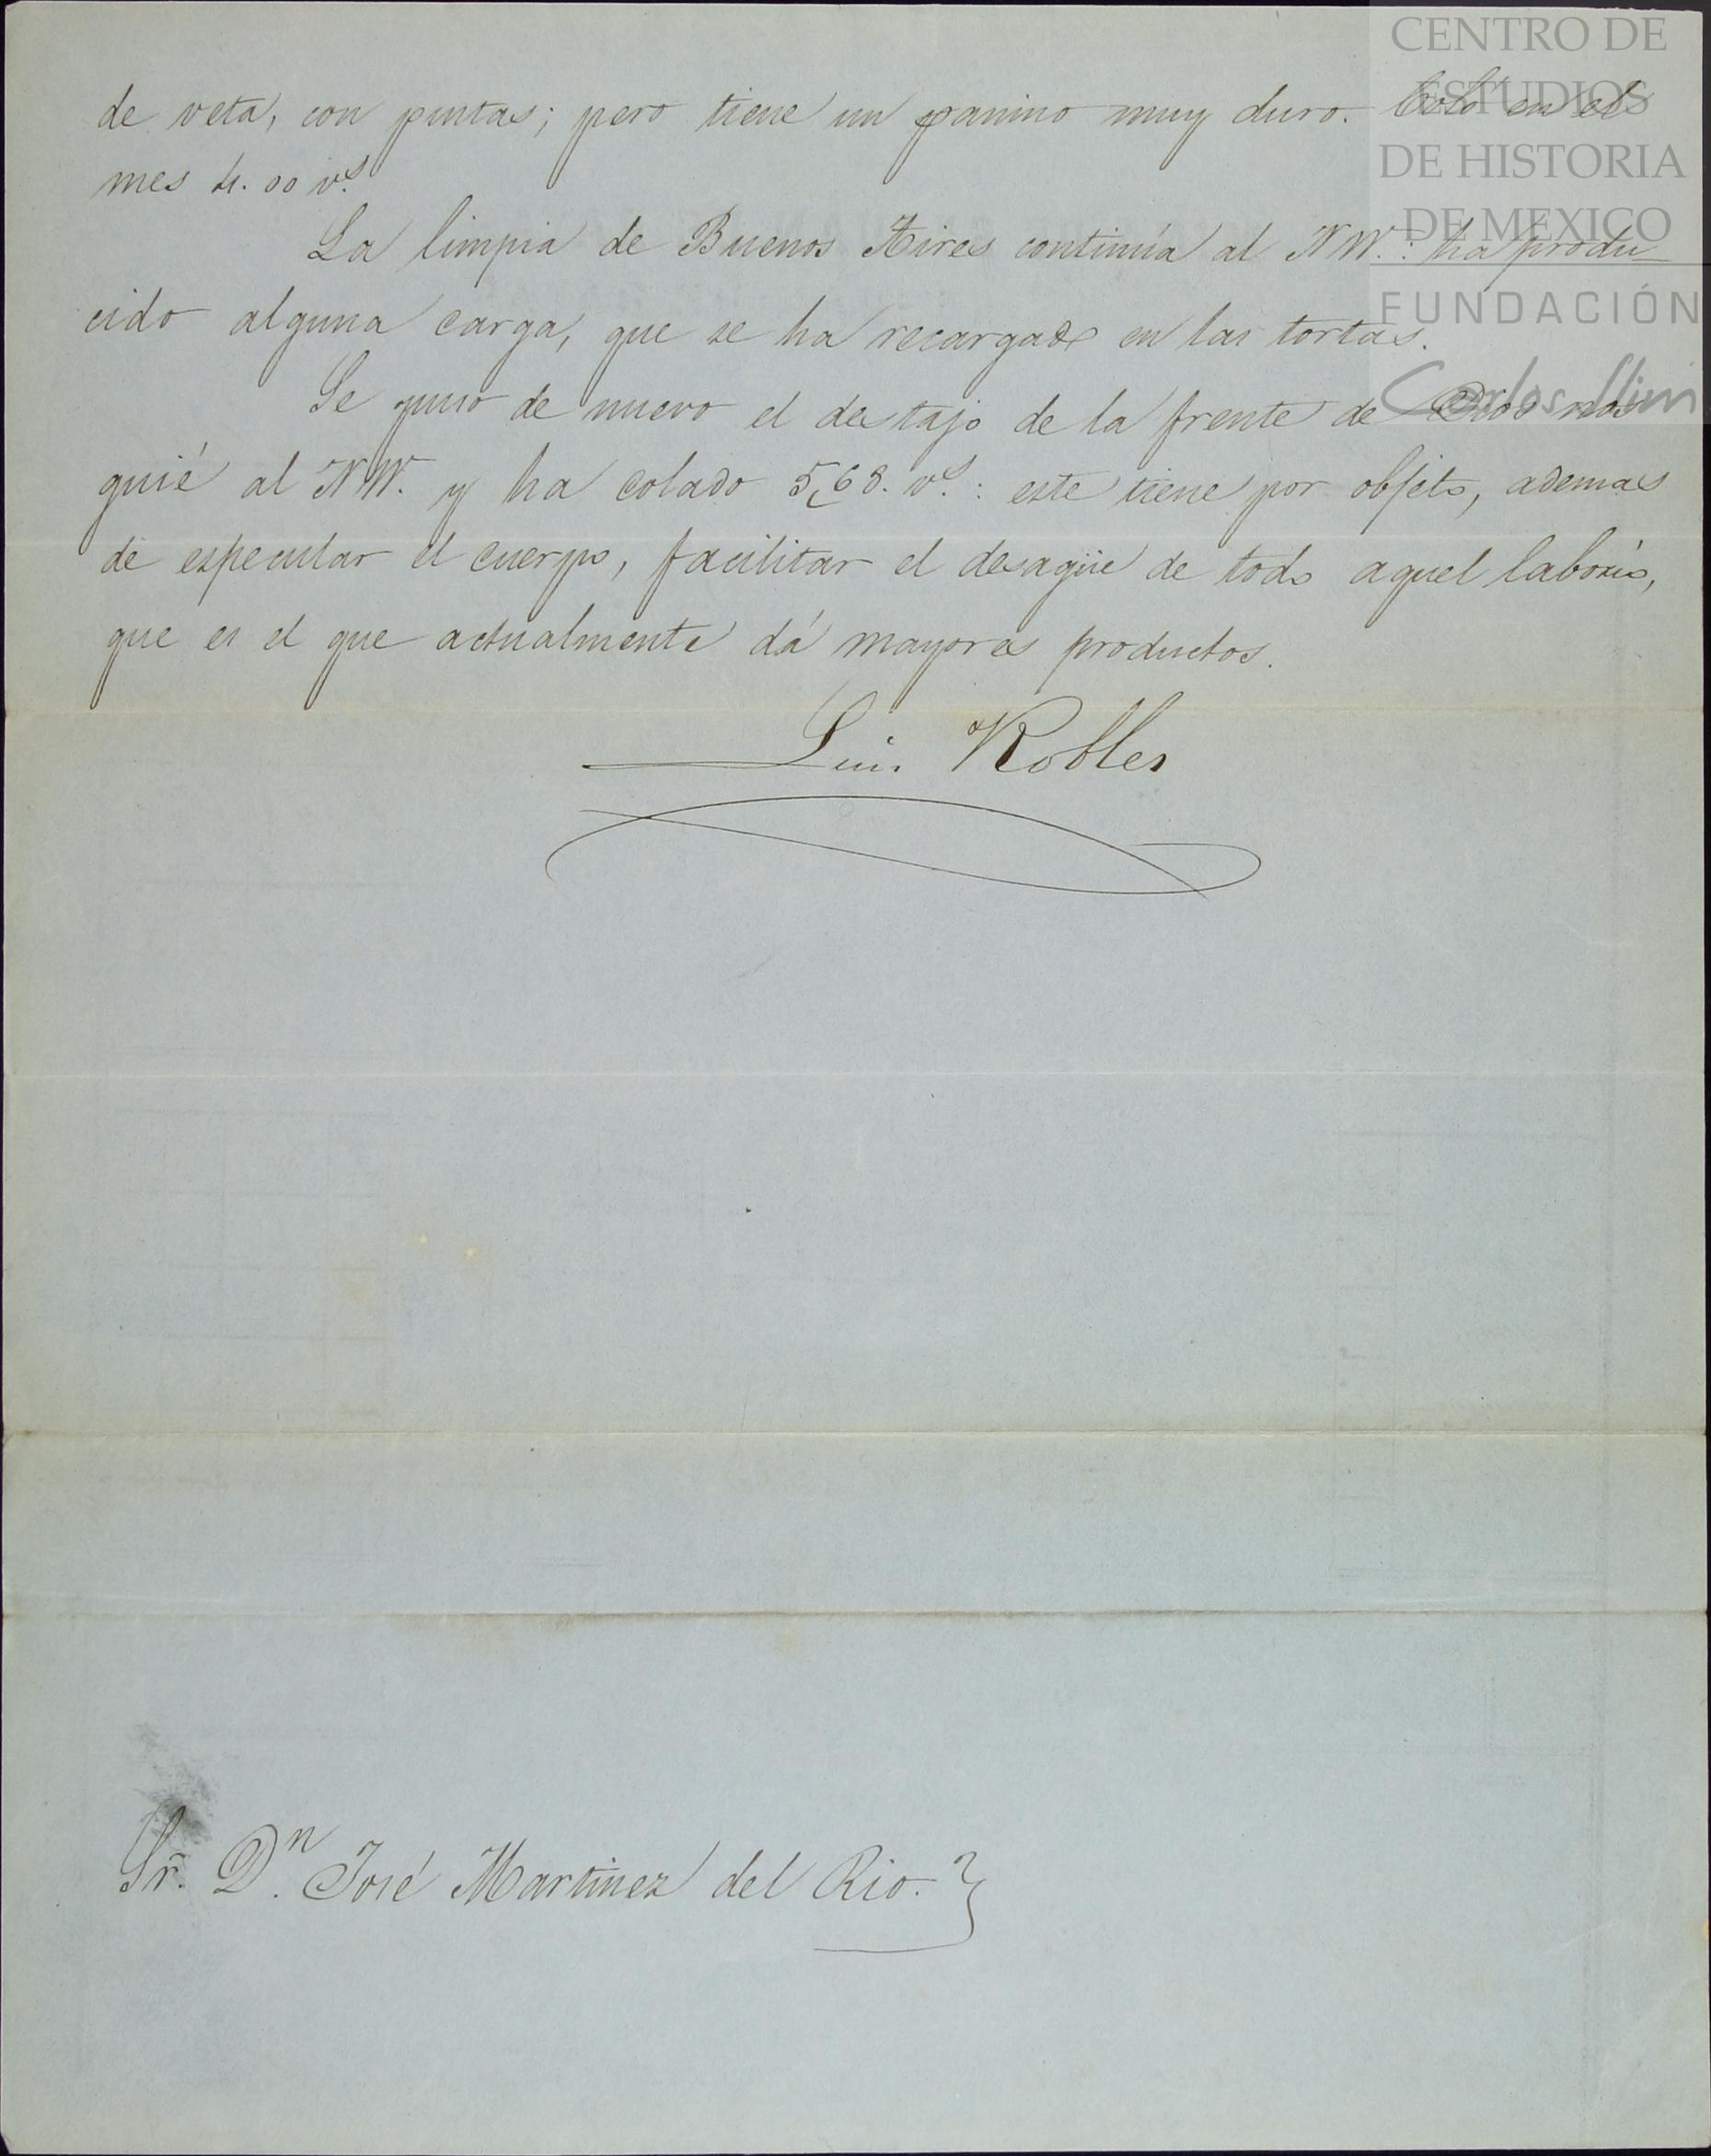 CENTRO DE
ESTUDIOS
DE HISTORIA
DE MEXICO
FUNDACIÓN
Carlos Slim
de veta, con pintas; pero tiene un panino muy duro. Coló en el
mes 4.00 v.s
La limpia de Buenos Aires continúa al NW.: ha produ
cido alguna carga, que se ha recargado en las tortas.
Se puso de nuevo el destajo de la frente de Dios nos
guié al NW. y ha colado 5,68. v.s: este tiene por objeto, ademas
de especular el cuerpo, facilitar el desagüe de todo aquel laborío,
que es el que actualmente dá mayores productos.
Luis Robles
Sr. D.n José Martinez del Rio.